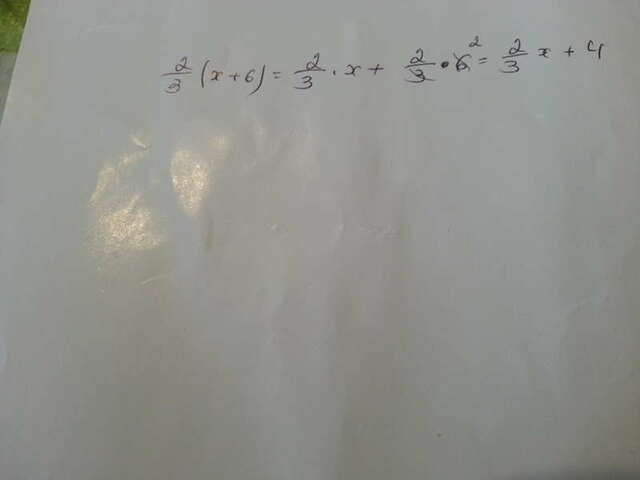 2/3 (x+6) = 2/3 · x + 2/3 · 6 2 = 2/3 x + 4